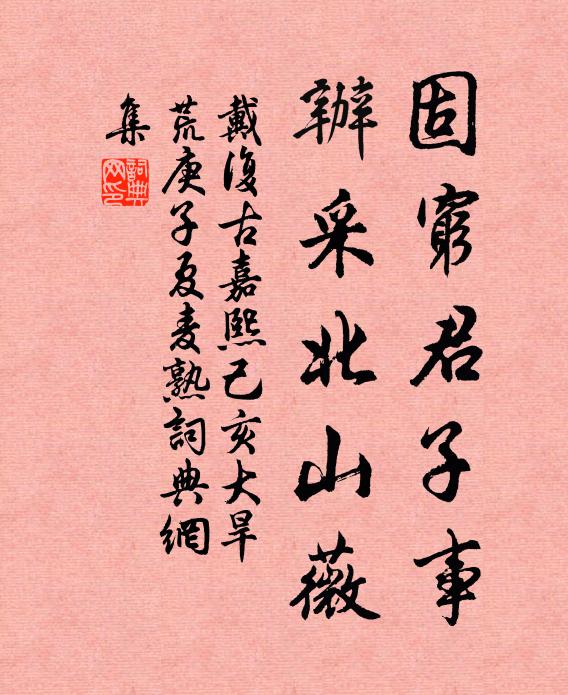 固窮君子事
辦采北山薇
戴復古嘉熙己亥大旱
荒庚子夏麦熟詞典網
集
詞典
网印